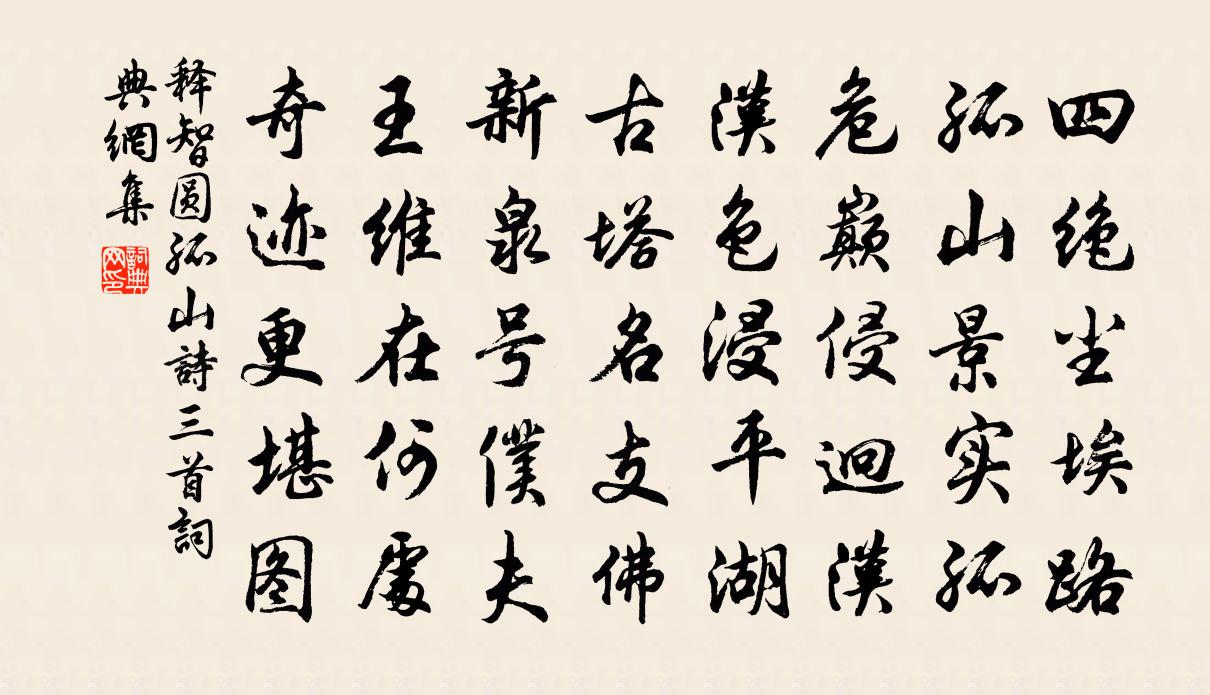 四绝尘埃路
孤山景实孤
危巔侵迥漢
漢色浸平湖
古塔名支佛
新泉号僕夫
王维在何處
奇迹更堪图
释智圆孤山詩三首詞
典網集
詞典网印